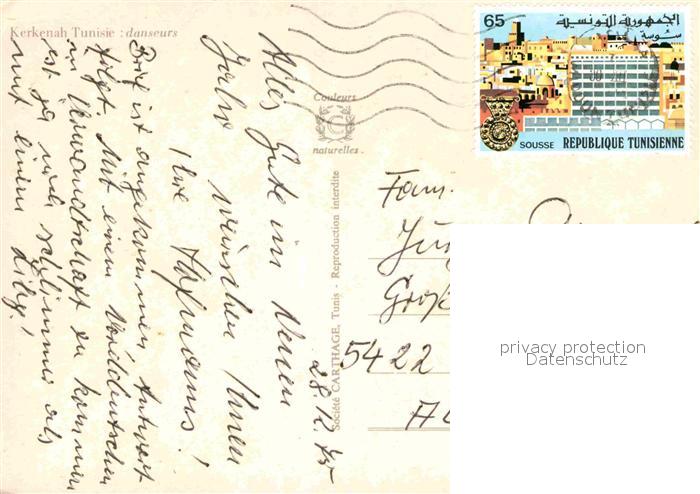 Kerkenah Tunisie : danseurs
Couleurs
naturelles.
Société CARTHAGE, Tunis - Reproduction interdite
65
الجمهورية التونسية
سوسة
SOUSSE REPUBLIQUE TUNISIENNE
28.12.75
Alles Gute im Neuen
Jahr wünschen Ihnen
Ihre Hofmanns!
Brief ist angekommen, Antwort
folgt. Mit einem Norddeutschen
in Verwandtschaft zu kommen
ist ja nicht schlimmer als
mit einem
Fam.
Groß
5422
privacy protection
Datenschutz